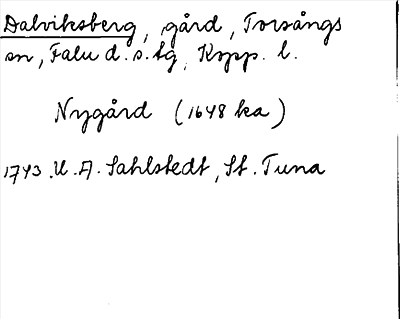 Dalviksberg, gård, Torsångs
sn, Falu d. s. tg, Kopp. l.
Nygård (1648 ka)
1743. U. A. Sahlstedt, St. Tuna